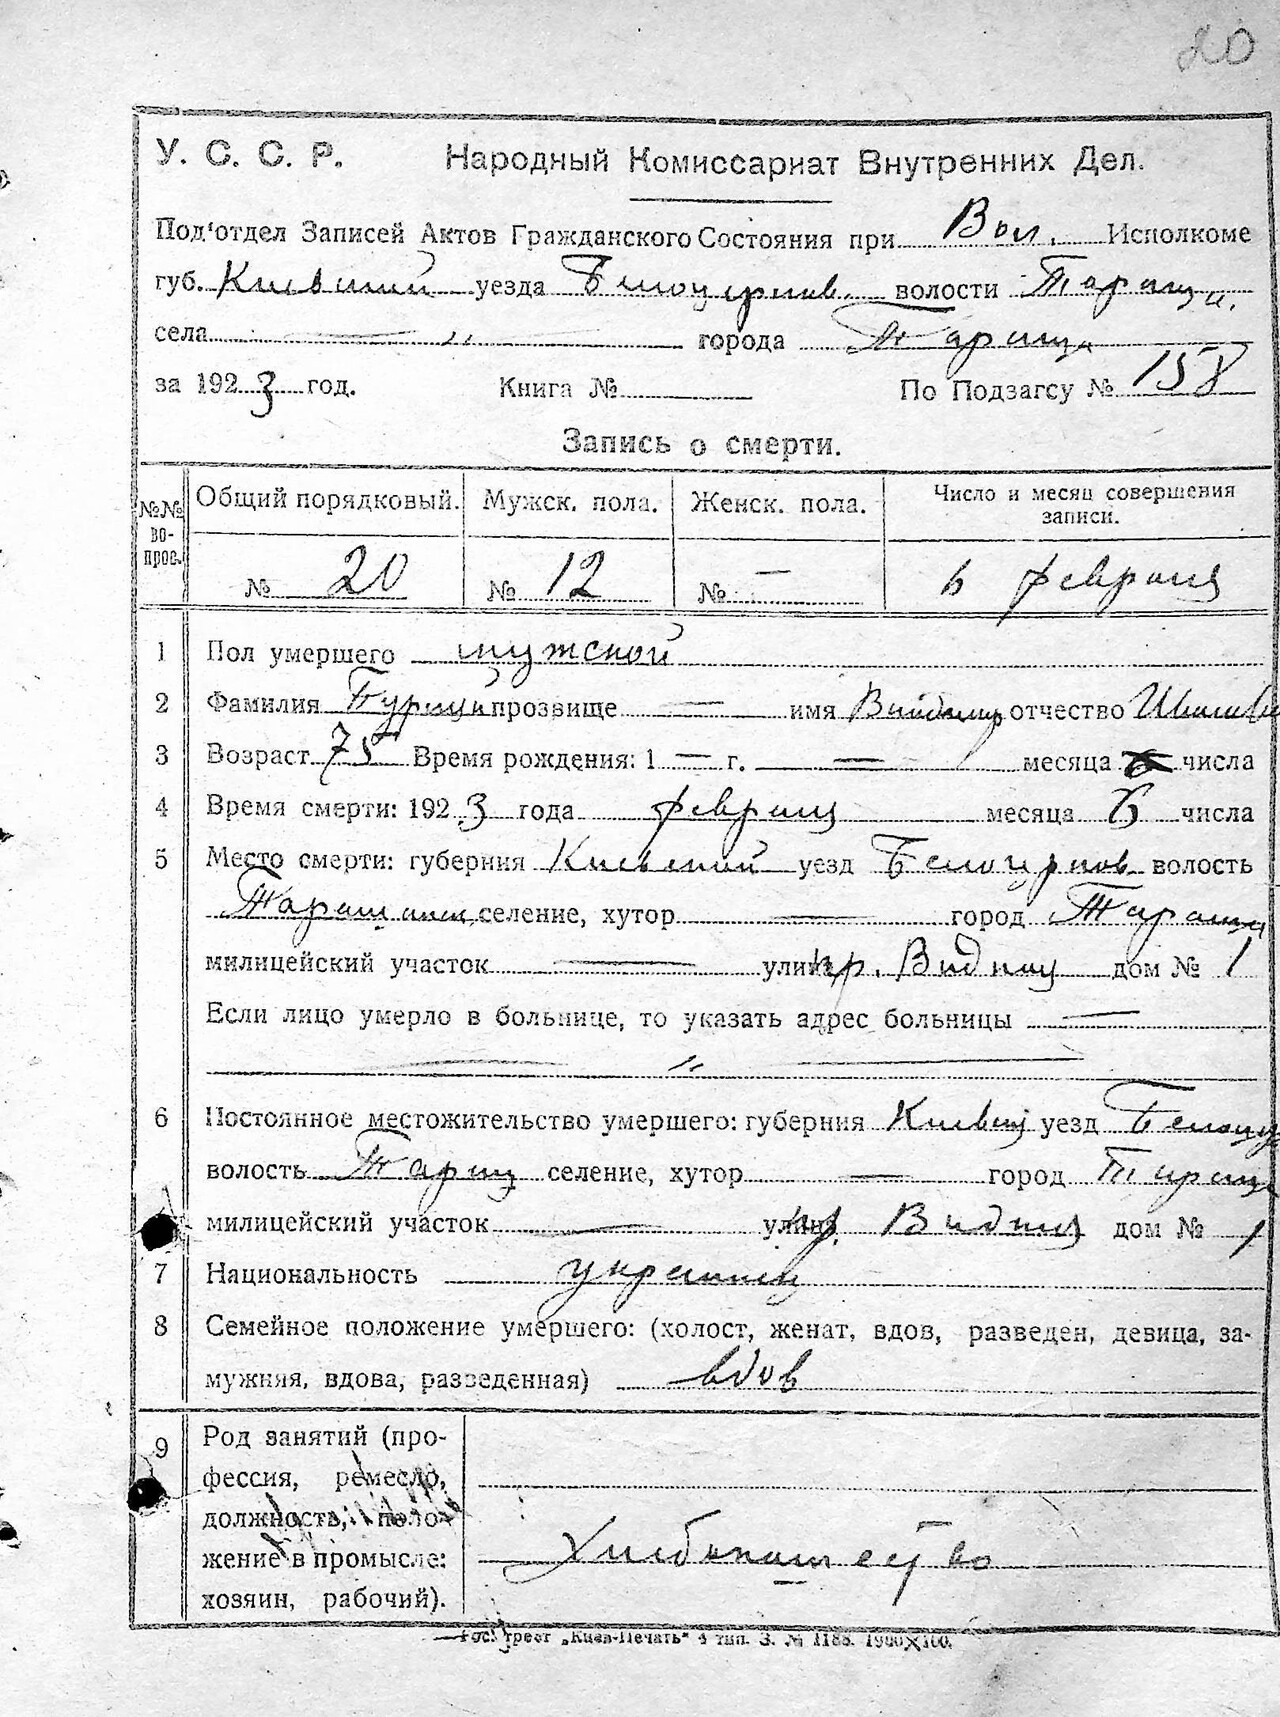 20
У. С. С. Р. Народный Комиссариат Внутренних Дел.
Под'отдел Записей Актов Гражданского Состояния при Вол. Исполкоме
губ. Киевский уезда Белоцерков. волости Таращ.
села — „ — города Тараща
за 1923 год. Книга № По Подзагсу № 158
Запись о смерти.
№№ вопрос. Общий порядковый. Мужск. пола. Женск. пола. Число и месяц совершения записи.
№ 20 № 12 № — 6 февраля
1 Пол умершего мужской
2 Фамилия прозвище — имя отчество
3 Возраст 75 Время рождения: 1 — г. — месяца числа
4 Время смерти: 1923 года февраля месяца 6 числа
5 Место смерти: губерния Киевский уезд Белоцерков волость
селение, хутор — город Тараща
милицейский участок — улица дом № 1
Если лицо умерло в больнице, то указать адрес больницы —
— „ —
6 Постоянное местожительство умершего: губерния уезд
волость Таращ селение, хутор — город Тараща
милицейский участок — улица дом № 1
7 Национальность украинец
8 Семейное положение умершего: (холост, женат, вдов, разведен, девица, за-
мужняя, вдова, разведенная) вдов
9 Род занятий (про-
фессия, ремесло,
должность, поло-
жение в промысле:
хозяин, рабочий).
Хлебопашество
Гострест „Киев-Печать" 4 тип. З. № 1188.